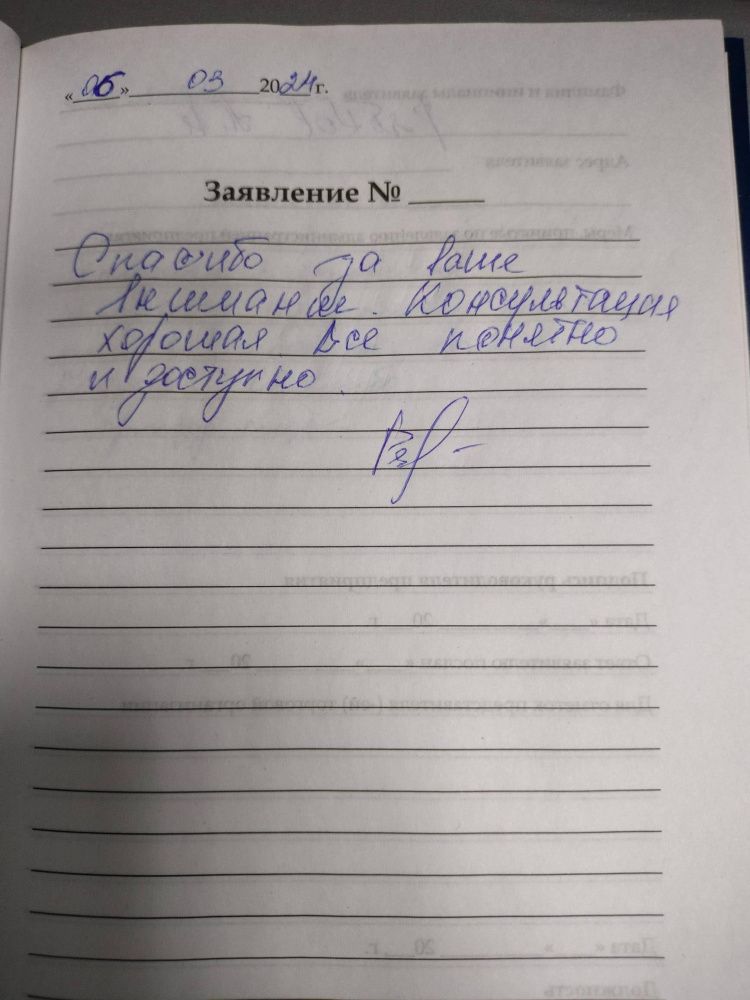 «05» 03 2024г.
Заявление №
Спасибо за ваше
внимание. Консультация
хорошая все понятно
и доступно.